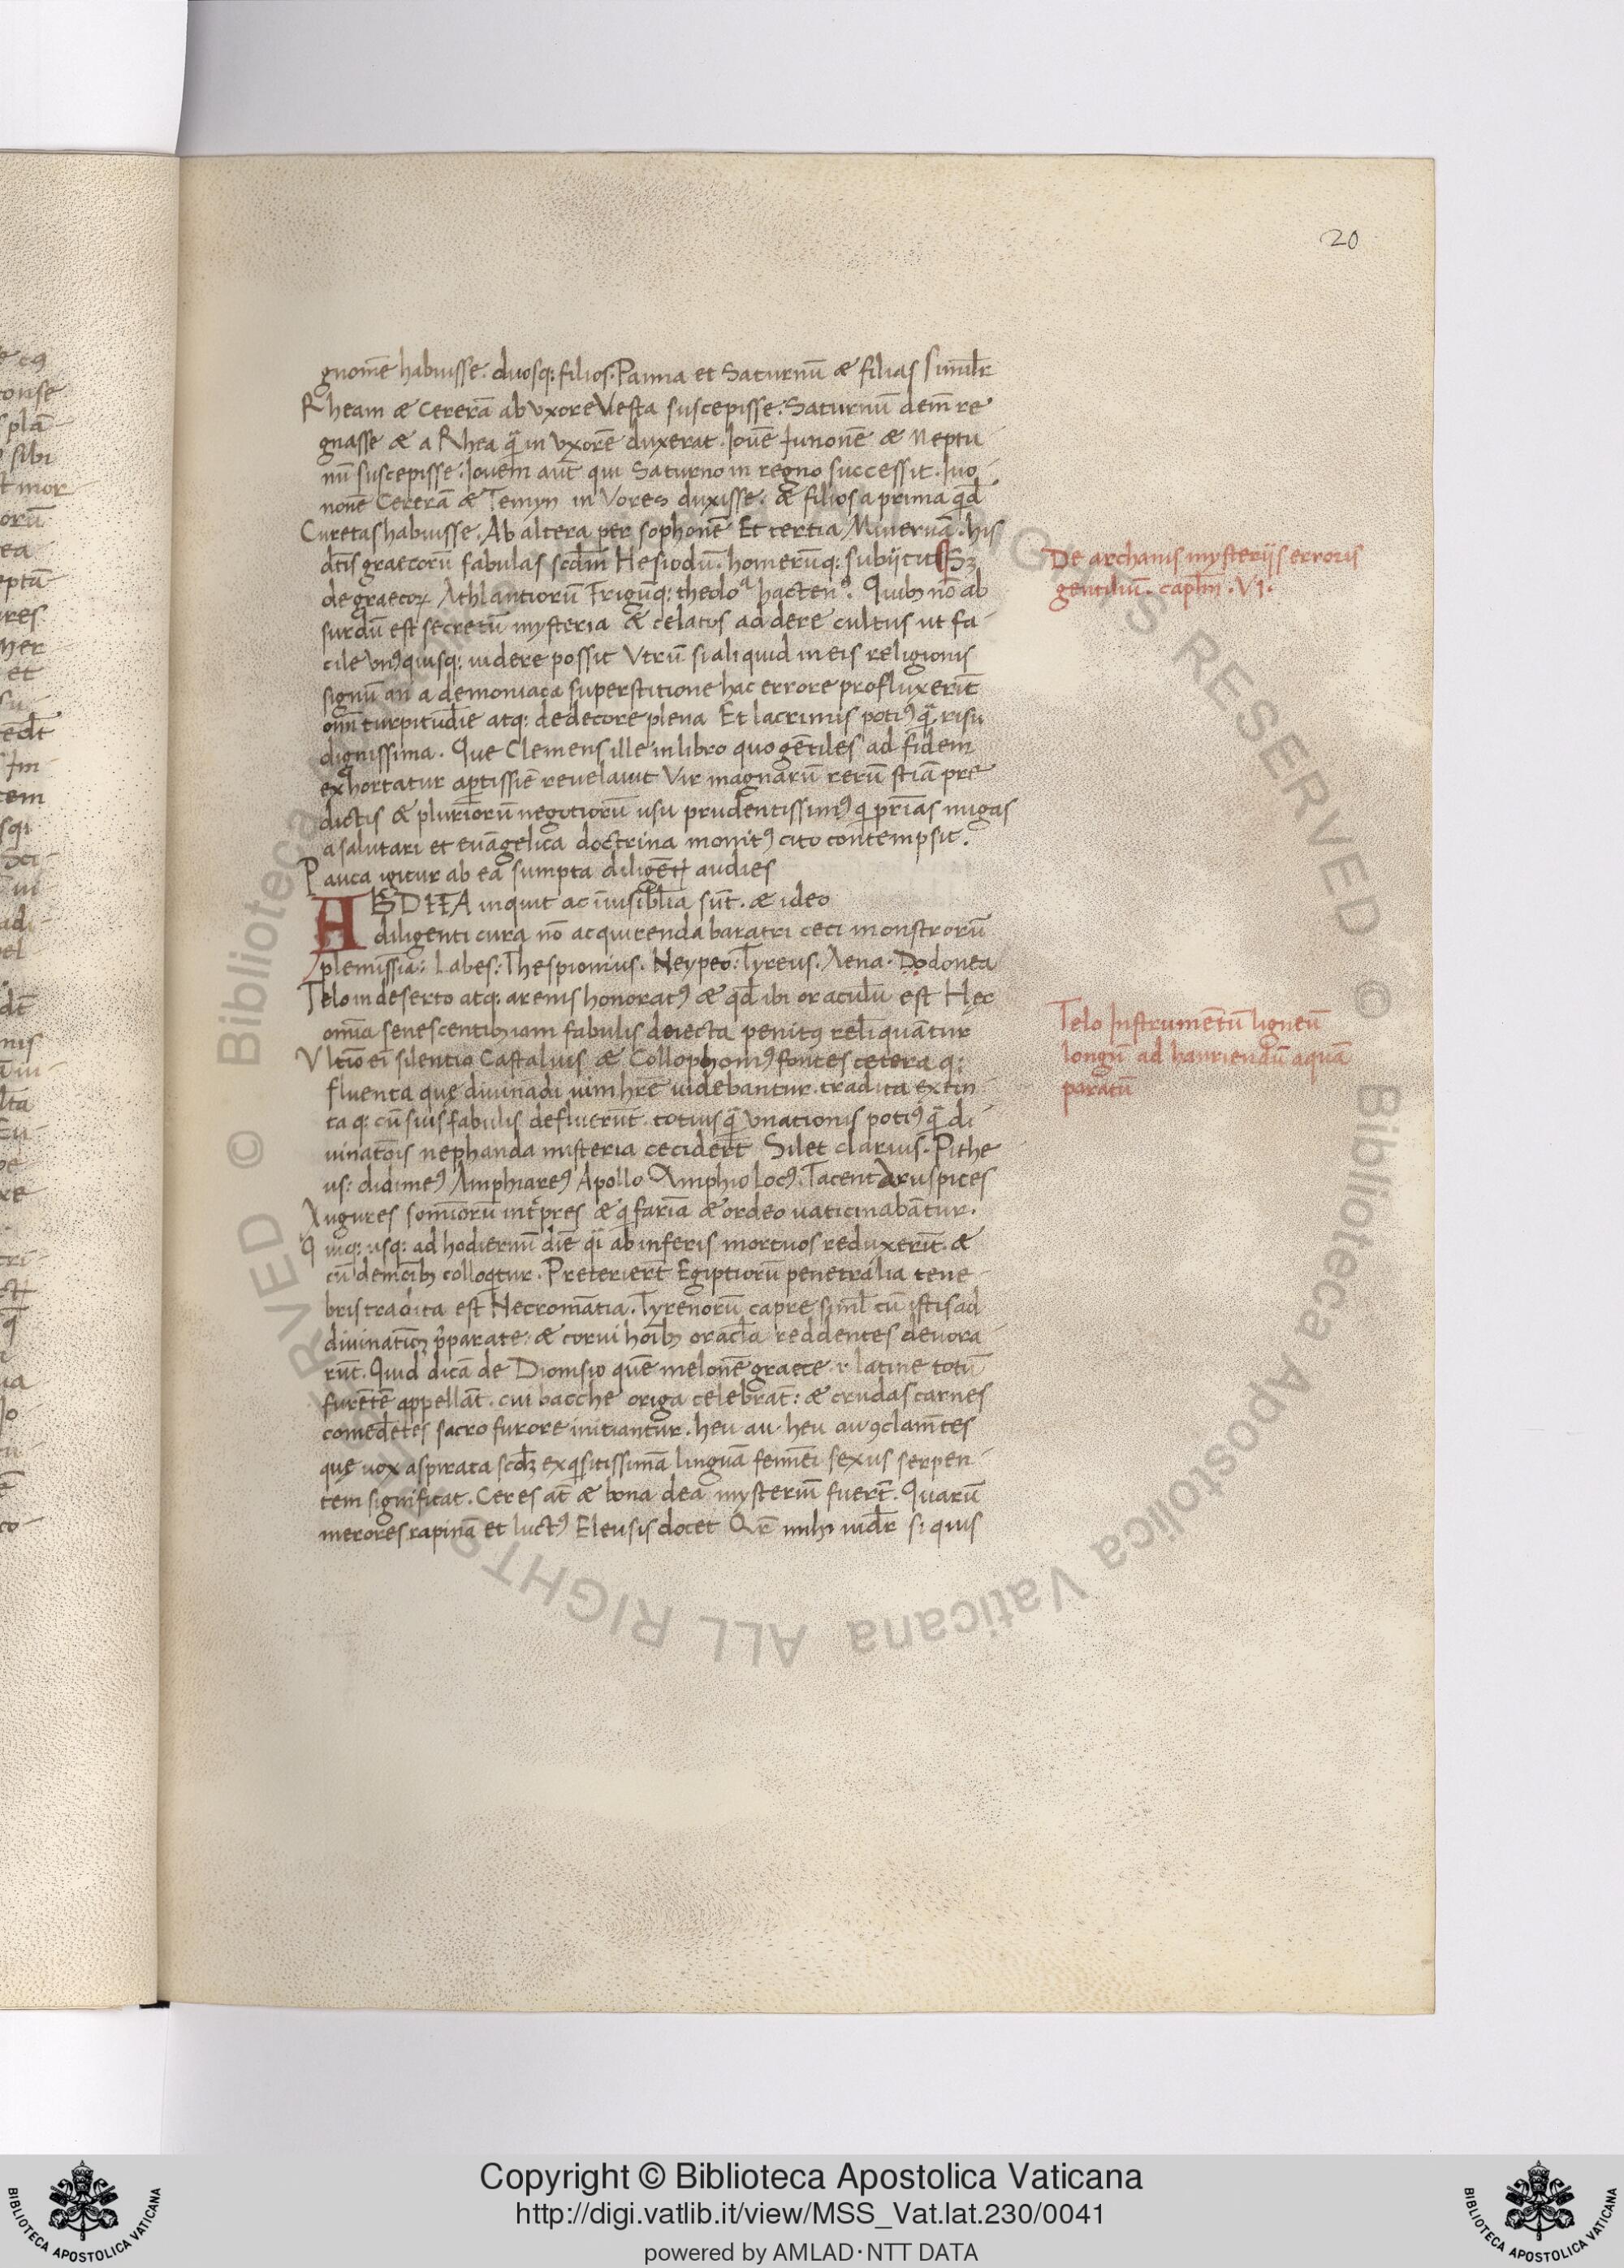 20
gnomē habuisse. duosq: filios. Panna et Saturnū æ filias simil̄r
Rheam æ Cererā ab vxore Vesta suscepisse. Saturnū dem̄ re
gnasse æ a Rhea q̄ in vxorē duxerat. Iouē Iunonē æ Neptu
nū suscepisse. Iouem aūt qui Saturno in regno successit. Iuo
nonē Cererā æ Temyn in Vores duxisse: æ filios a prima qd̄
Curetas habuisse. Ab altera per sophonē Et tertia Mineruā. his
dt̄is graecorū fabulas scdm̄ Hesiodū. homerūq: subijcit Sꝫ
de graecoꝝ Athlantiorū Frigūq: theoloᵃ hactenꝰ. Quibꝫ nō ab
surdū est secretū mysteria æ celatos addere cultus ut fa
cile vnꝰquisq: uidere possit Vtrū si aliquid in eis religionis
signū an a demoniaca superstitione hac errore profluxerīt
om̄i turpitudīe atq: dedecore plena Et lacrimis potiꝰ q̄ risu
dignissima. Que Clemens ille in libro quo gētiles ad fidem
exhortatur aptissiē reuelauit Vir magnarū rerū st̄iā pre
dictis æ pluriorū negotiorū usu prudentissimꝰ q pr̄ias nugas
a salutari et euāgelica doctrina monitꝰ cito contempsit.
Pauca igitur ab ea sumpta diligēt audies
ABDITA inquit ac īuisibl̄ia sūt. æ ideo
diligenti cura nō acquirenda baratri ceci monstrorū
plenissīa: Labes: Thespionius. Neypeo: Tyreus. Aena. Dodonea
Telo in deserto atq: arenis honoratꝰ æ qd̄ ibi oraculū est Hęc
om̄ia senescentibꝫ iam fabulis deiecta penitꝰ reliquāntur
Vltīo ei silentio Castaluis æ Collophomꝰ fontes cetera q:
fluenta quę diuinādi uim hr̄e uidebantur. tradita extin
ta q: cū suis fabulis defluerūt. totius q̄ vnationis potiꝰ q̄ di
uinatōis nephanda misteria ceciderēt Silet clarius. Pithe
us: didimeꝰ Amphiareꝰ Apollo Amphiolocꝰ. Tacent Aruspices
Augures somniorū int̄pres æ q farīa æ ordeo uaticinabātur.
Quiq: usq: ad hodiernū diē q̄i ab inferis mortuos reduxerīt. æ
cū demōibꝫ colloq̄tur. Preterierēt Egiptiorū penetralia tene
bris tradita est Necromātia. Tyrenorū capre siml̄ cū istis ad
diuinatiōꝫ p̄parate: æ corui hoībꝫ oracl̄a reddentes deuora
rūt. Quid dicā de Dionisio quē melonē graece. r latine totū
furētē appellāt. cui bacche origa celebrāt: æ crudas carnes
comedētes sacro furore initiantur. heu. au. heu au ꝯclam̄tes
quę uox aspirata scdꝫ exqsitissimā linguā feminei sexus serpen
tem significat. Ceres at̄ æ bona dea mysteriū fuerūt. Quarū
merores rapinā et luctꝰ Eleusis docet Qr̄e mihi uidr̄ si quis
De archanis mysterijs erroris
gentiliū. caplm̄. VI.
Telo Instrumētū ligneū
longū ad hauriendū aquā
paratū
Copyright © Biblioteca Apostolica Vaticana
http://digi.vatlib.it/view/MSS_Vat.lat.230/0041
powered by AMLAD·NTT DATA